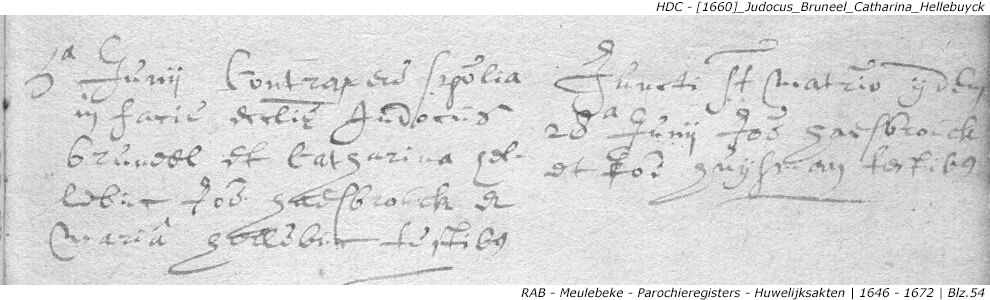 HDC - [1660]_Judocus_Bruneel_Catharina_Hellebuyck
5a Junij Contraxerūt spōlia
in facie ecclīe Judocus
bruneel et Catharina hel-
lebuc Joē haesbrouck et
Maria hellebuc testibq
Juncti st matrīo ijdem
28a Junij Joē haesbrouck
et Joē huijsman testibq
RAB - Meulebeke - Parochieregisters - Huwelijksakten | 1646 - 1672 | Blz.54